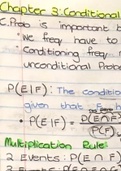 Chapter 3: Conditional
C.Prob is important b
We freq have to
Conditioning freq
unconditional Prob
P(E|F): The conditio
given that F h
• P(E|F) = P(E∩F)
P(F)
Multiplication Rule:
2 Events: P(E∩F)